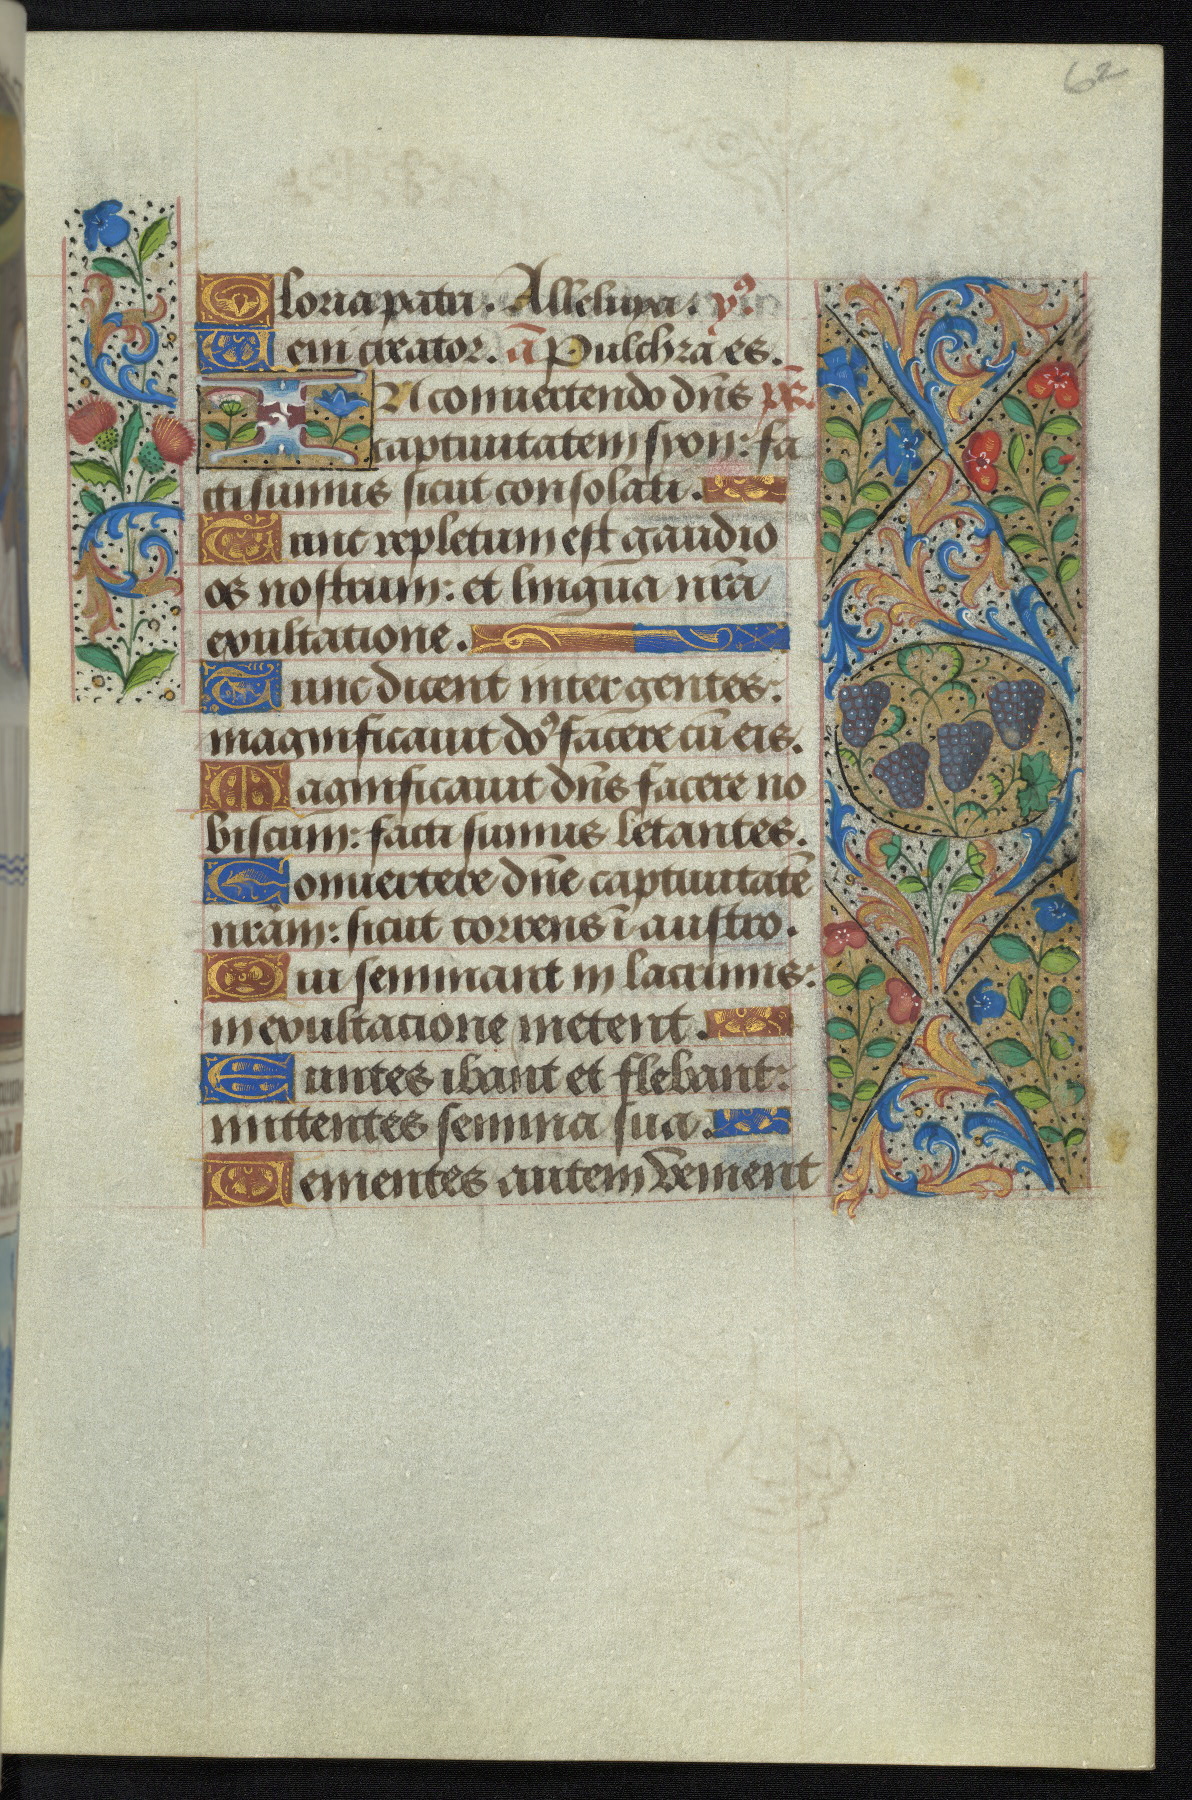 62
Gloria patri. Alleluya. yꝰ
Veni creator. ā Pulchra es.
IN convertendo dn̄s pr̄
captivitatem syon: fa
cti sumus sicut consolati.
Tunc repletum est gaudio
os nostrum: et lingua nr̄a
exultatione.
Tunc dicent inter gentes:
magnificavit doꝰ facere cū eis.
Magnificavit dn̄s facere no
biscum: facti sumus letantes.
Convertere dn̄e captivitatē
nrām: sicut torrens ī austro.
Qui seminant in lacrimis:
in exultatione metent.
Euntes ibant et flebant:
mittentes semina sua.
Venientes autem venient